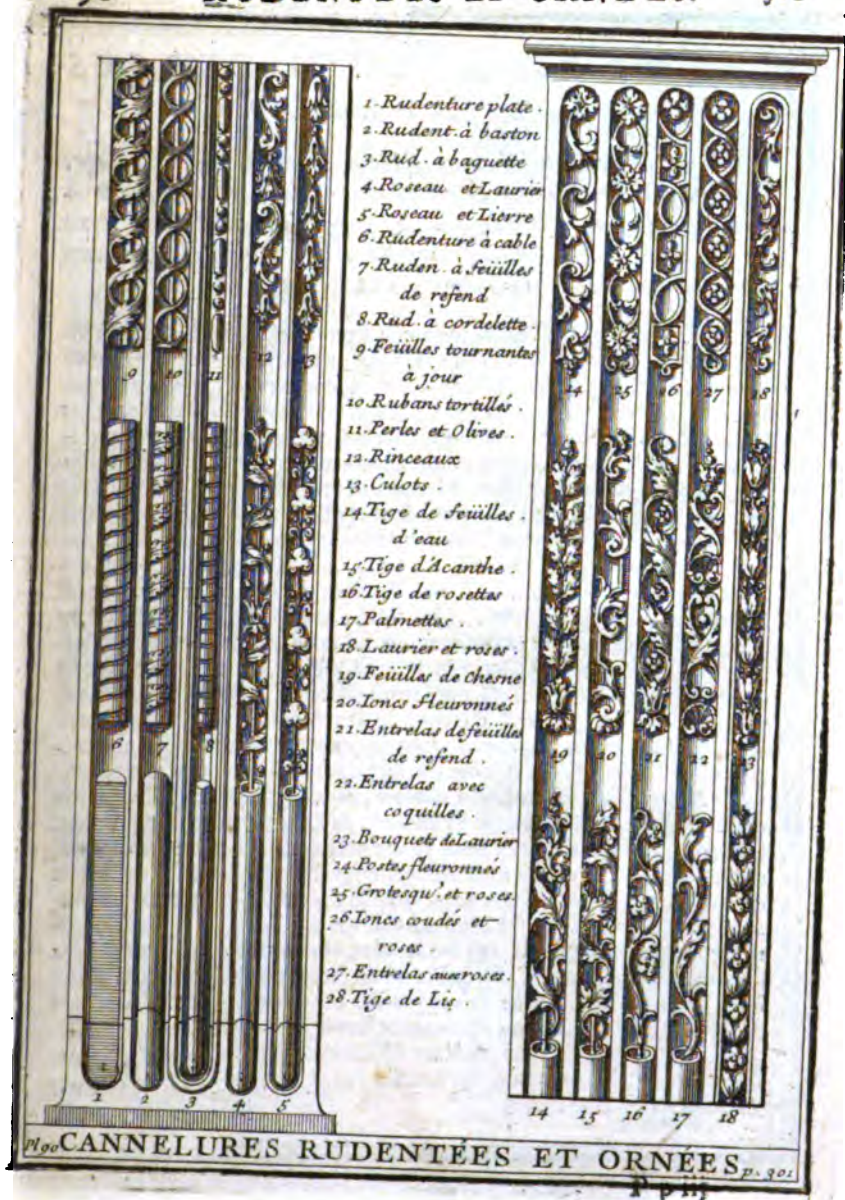 1. Rudenture plate.
2. Rudent. à baston
3. Rud. à baguette
4. Roseau et Laurier
5. Roseau et Lierre
6. Rudenture à cable
7. Ruden. à feüilles
de refend
8. Rud. à cordelette.
9. Feüilles tournantes
à jour
10. Rubans tortillés.
11. Perles et Olives.
12. Rinceaux
13. Culots.
14. Tige de feüilles.
d'eau
15. Tige d'Acanthe.
16. Tige de rosettes
17. Palmettes.
18. Laurier et roses.
19. Feüilles de chesne
20. Ioncs fleuronnés
21. Entrelas de feüilles
de refend.
22. Entrelas avec
coquilles.
23. Bouquets de Laurier
24. Postes fleuronnés
25. Grotesqu.' et roses.
26. Ioncs coudés et
roses.
27. Entrelas avec roses.
28. Tige de Lis.
9 10 11 12 13
6 7 8
1 2 3 4 5
24 25 26 27 28
19 20 21 22 23
14 15 16 17 18
Pl 90 CANNELURES RUDENTÉES ET ORNÉES p. 301
P p iij